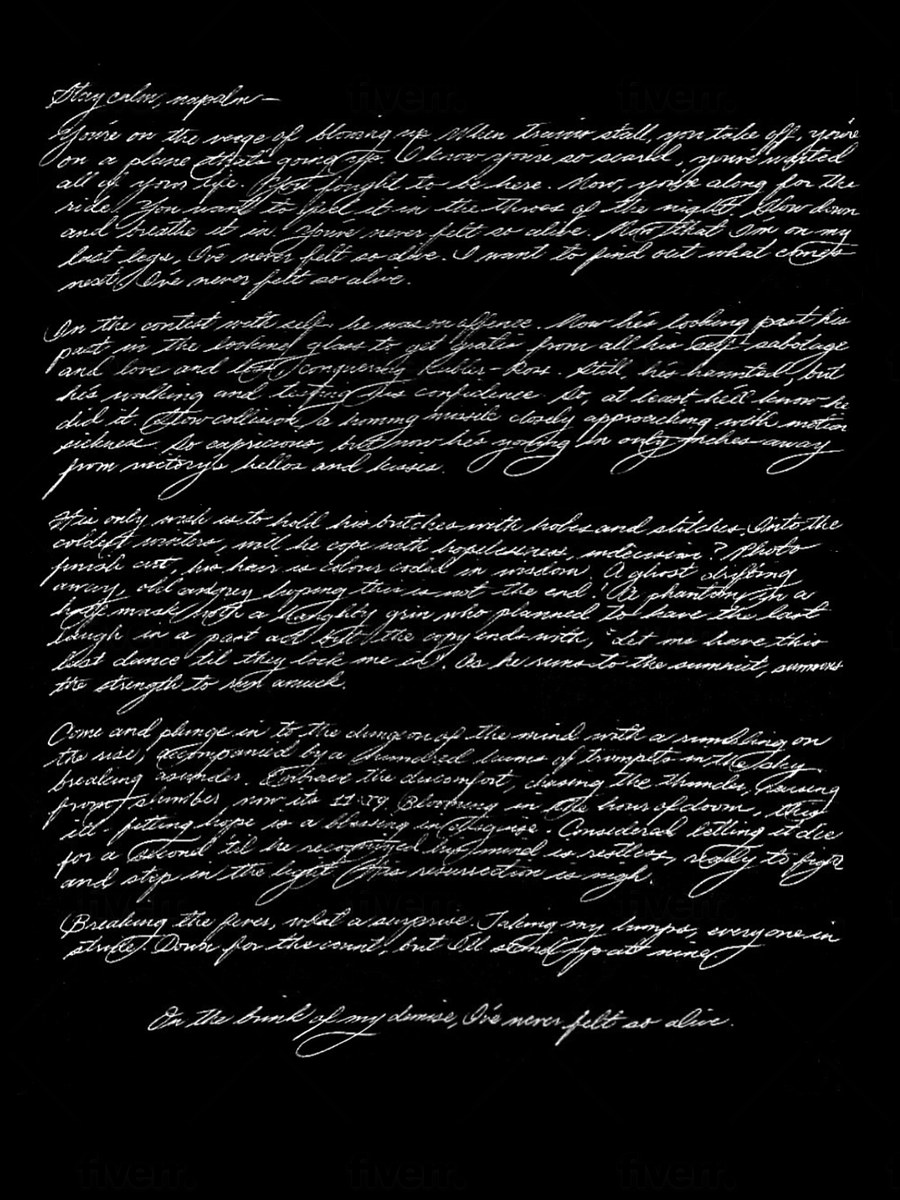 Stay calm, napalm—
You're on the verge of blowing up. When trains stall, you take off, you're
on a plane that's going up. I know you're so scared, you've waited
all of your life. You fought to be here. Now, you're along for the
ride. You want to feel it in the throes of the night. Slow down
and breathe it in. You've never felt so alive. Now that I'm on my
last legs, I've never felt so alive. I want to find out what comes
next. I've never felt so alive.
In the contest with self, he was on offence. Now he's looking past his
past in the looking glass to get gratis from all his self-sabotage
and love and loss conquering Kubler-Ross. Still, he's haunted, but
he's walking and testing his confidence. So, at least he'll know he
did it. Slow collision, a homing missile closely approaching with motion
sickness. So capricious, but now he's only inches away
from victory's hellos and kisses.
His only wish is to hold his britches with holes and stitches. Into the
coldest winters, will he cope with hopelessness, indecision? Photo
finish cut, his hair is colour coded in wisdom. A ghost drifting
away, old and grey hoping this is not the end. A phantom in a
half mask with a naughty grin who planned to have the last
laugh in a past act but the copy ends with, "Let me have this
last dance 'til they lock me in". As he runs to the summit, summons
the strength to run amuck.
Come and plunge in to the dungeon of the mind with a rumbling on
the rise, accompanied by a hundred of trumpets in the sky
breaking asunder. Embrace the discomfort, chasing the thunder, rousing
from slumber, now its 11:59. Blooming in the hour of down, this
ill-fitting hope is a blessing in disguise. Considered letting it die
for a second 'til he recognized his mind is restless, ready to fight
and step in the light. His resurrection is nigh.
Breaking the fever, what a surprise. Taking my lumps, everyone in
stride. Down for the count, but I'll stand up at nine.
On the brink of my demise, I've never felt so alive.
fiverr.